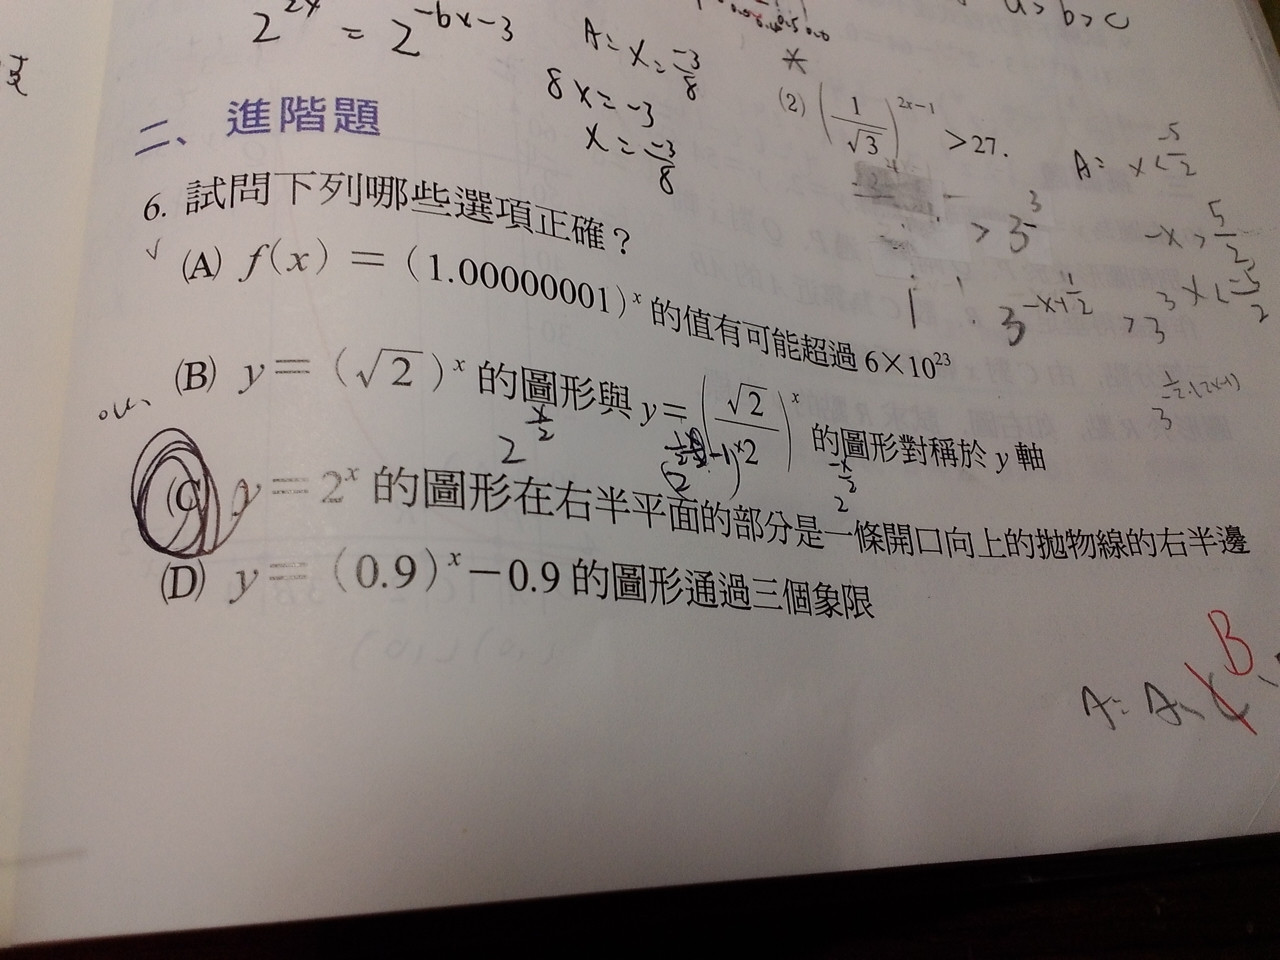 2^{2x} = 2^{-6x-3}
A= x= -3/8
8x=-3
x= -3/8
a>b>c
*
(2) (1/√3)^{2x-1} >27.
A= x< -5/2
> 3^3
-x> 5/2
3^{-x+1/2} > 3^3
x< -5/2
3^{-1/2·(2x-1)}
二、進階題
6. 試問下列哪些選項正確？
✓ (A) f(x) = (1.00000001)^x 的值有可能超過 6×10^23
(B) y= (√2)^x 的圖形與 y= (√2/2)^x 的圖形對稱於 y 軸
2^{x/2}
2^{-x/2}
(C) y=2^x 的圖形在右半平面的部分是一條開口向上的拋物線的右半邊
(D) y= (0.9)^x－0.9 的圖形通過三個象限
B
A= A、C、